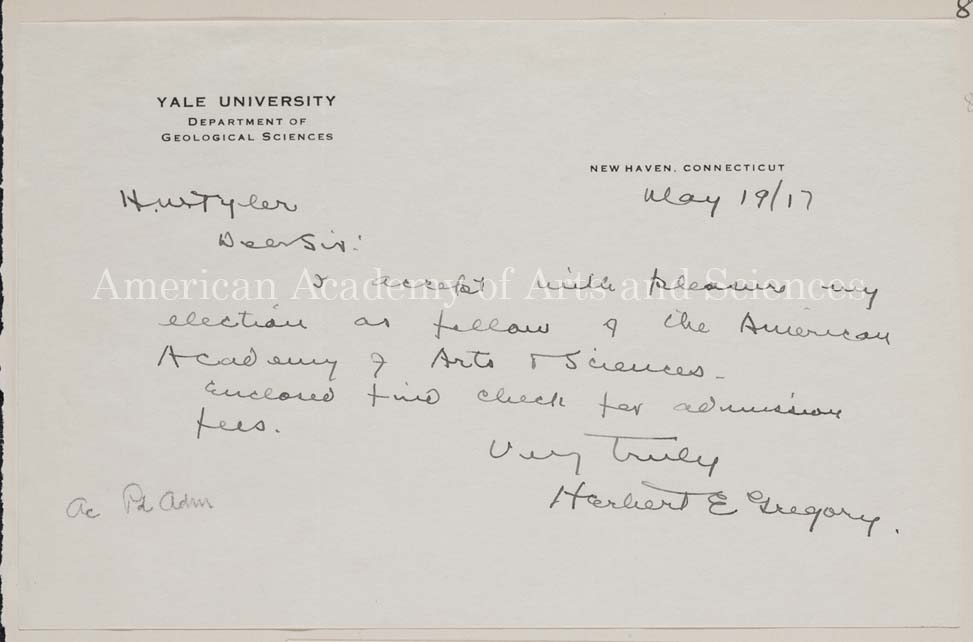 8
YALE UNIVERSITY
DEPARTMENT OF
GEOLOGICAL SCIENCES
NEW HAVEN, CONNECTICUT
May 19/17
H.W. Tyler
Dear Sir:
I accept with pleasure my
American Academy of Arts and Sciences
election as fellow of the American
Academy of Arts & Sciences.
Enclosed find check for admission
fees.
Very Truly
Herbert E Gregory.
Ac Pd Adm